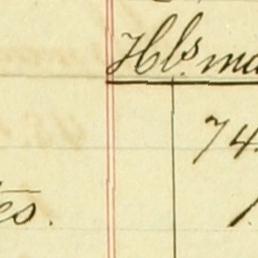 Hbs. ma
74
es.